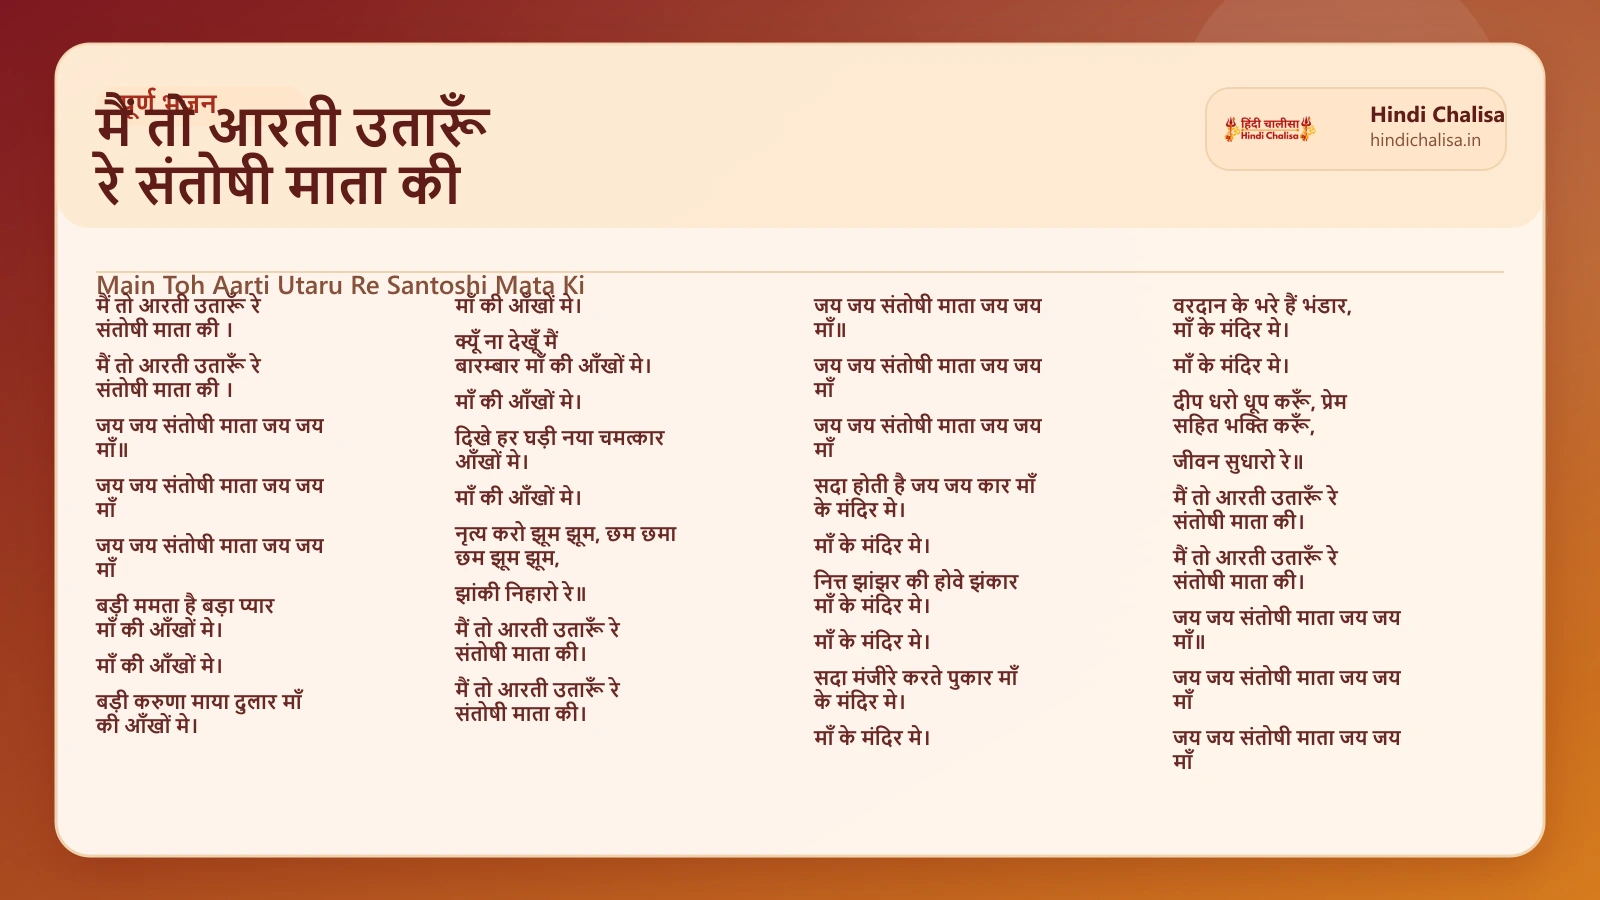 पूर्ण भजन
मैं तो आरती उतारूँ
रे संतोषी माता की
हिंदी चालीसा
Hindi Chalisa
Hindi Chalisa
hindichalisa.in
Main Toh Aarti Utaru Re Santoshi Mata Ki
मैं तो आरती उतारूँ रे
संतोषी माता की ।
मैं तो आरती उतारूँ रे
संतोषी माता की ।
जय जय संतोषी माता जय जय
माँ॥
जय जय संतोषी माता जय जय
माँ
जय जय संतोषी माता जय जय
माँ
बड़ी ममता है बड़ा प्यार
माँ की आँखों मे।
माँ की आँखों मे।
बड़ी करुणा माया दुलार माँ
की आँखों मे।
माँ की आँखों मे।
क्यूँ ना देखूँ मैं
बारम्बार माँ की आँखों मे।
माँ की आँखों मे।
दिखे हर घड़ी नया चमत्कार
आँखों मे।
माँ की आँखों मे।
नृत्य करो झूम झूम, छम छमा
छम झूम झूम,
झांकी निहारो रे॥
मैं तो आरती उतारूँ रे
संतोषी माता की।
मैं तो आरती उतारूँ रे
संतोषी माता की।
जय जय संतोषी माता जय जय
माँ॥
जय जय संतोषी माता जय जय
माँ
जय जय संतोषी माता जय जय
माँ
सदा होती है जय जय कार माँ
के मंदिर मे।
माँ के मंदिर मे।
नित्त झांझर की होवे झंकार
माँ के मंदिर मे।
माँ के मंदिर मे।
सदा मंजीरे करते पुकार माँ
के मंदिर मे।
माँ के मंदिर मे।
वरदान के भरे हैं भंडार,
माँ के मंदिर मे।
माँ के मंदिर मे।
दीप धरो धूप करूँ, प्रेम
सहित भक्ति करूँ,
जीवन सुधारो रे॥
मैं तो आरती उतारूँ रे
संतोषी माता की।
मैं तो आरती उतारूँ रे
संतोषी माता की।
जय जय संतोषी माता जय जय
माँ॥
जय जय संतोषी माता जय जय
माँ
जय जय संतोषी माता जय जय
माँ